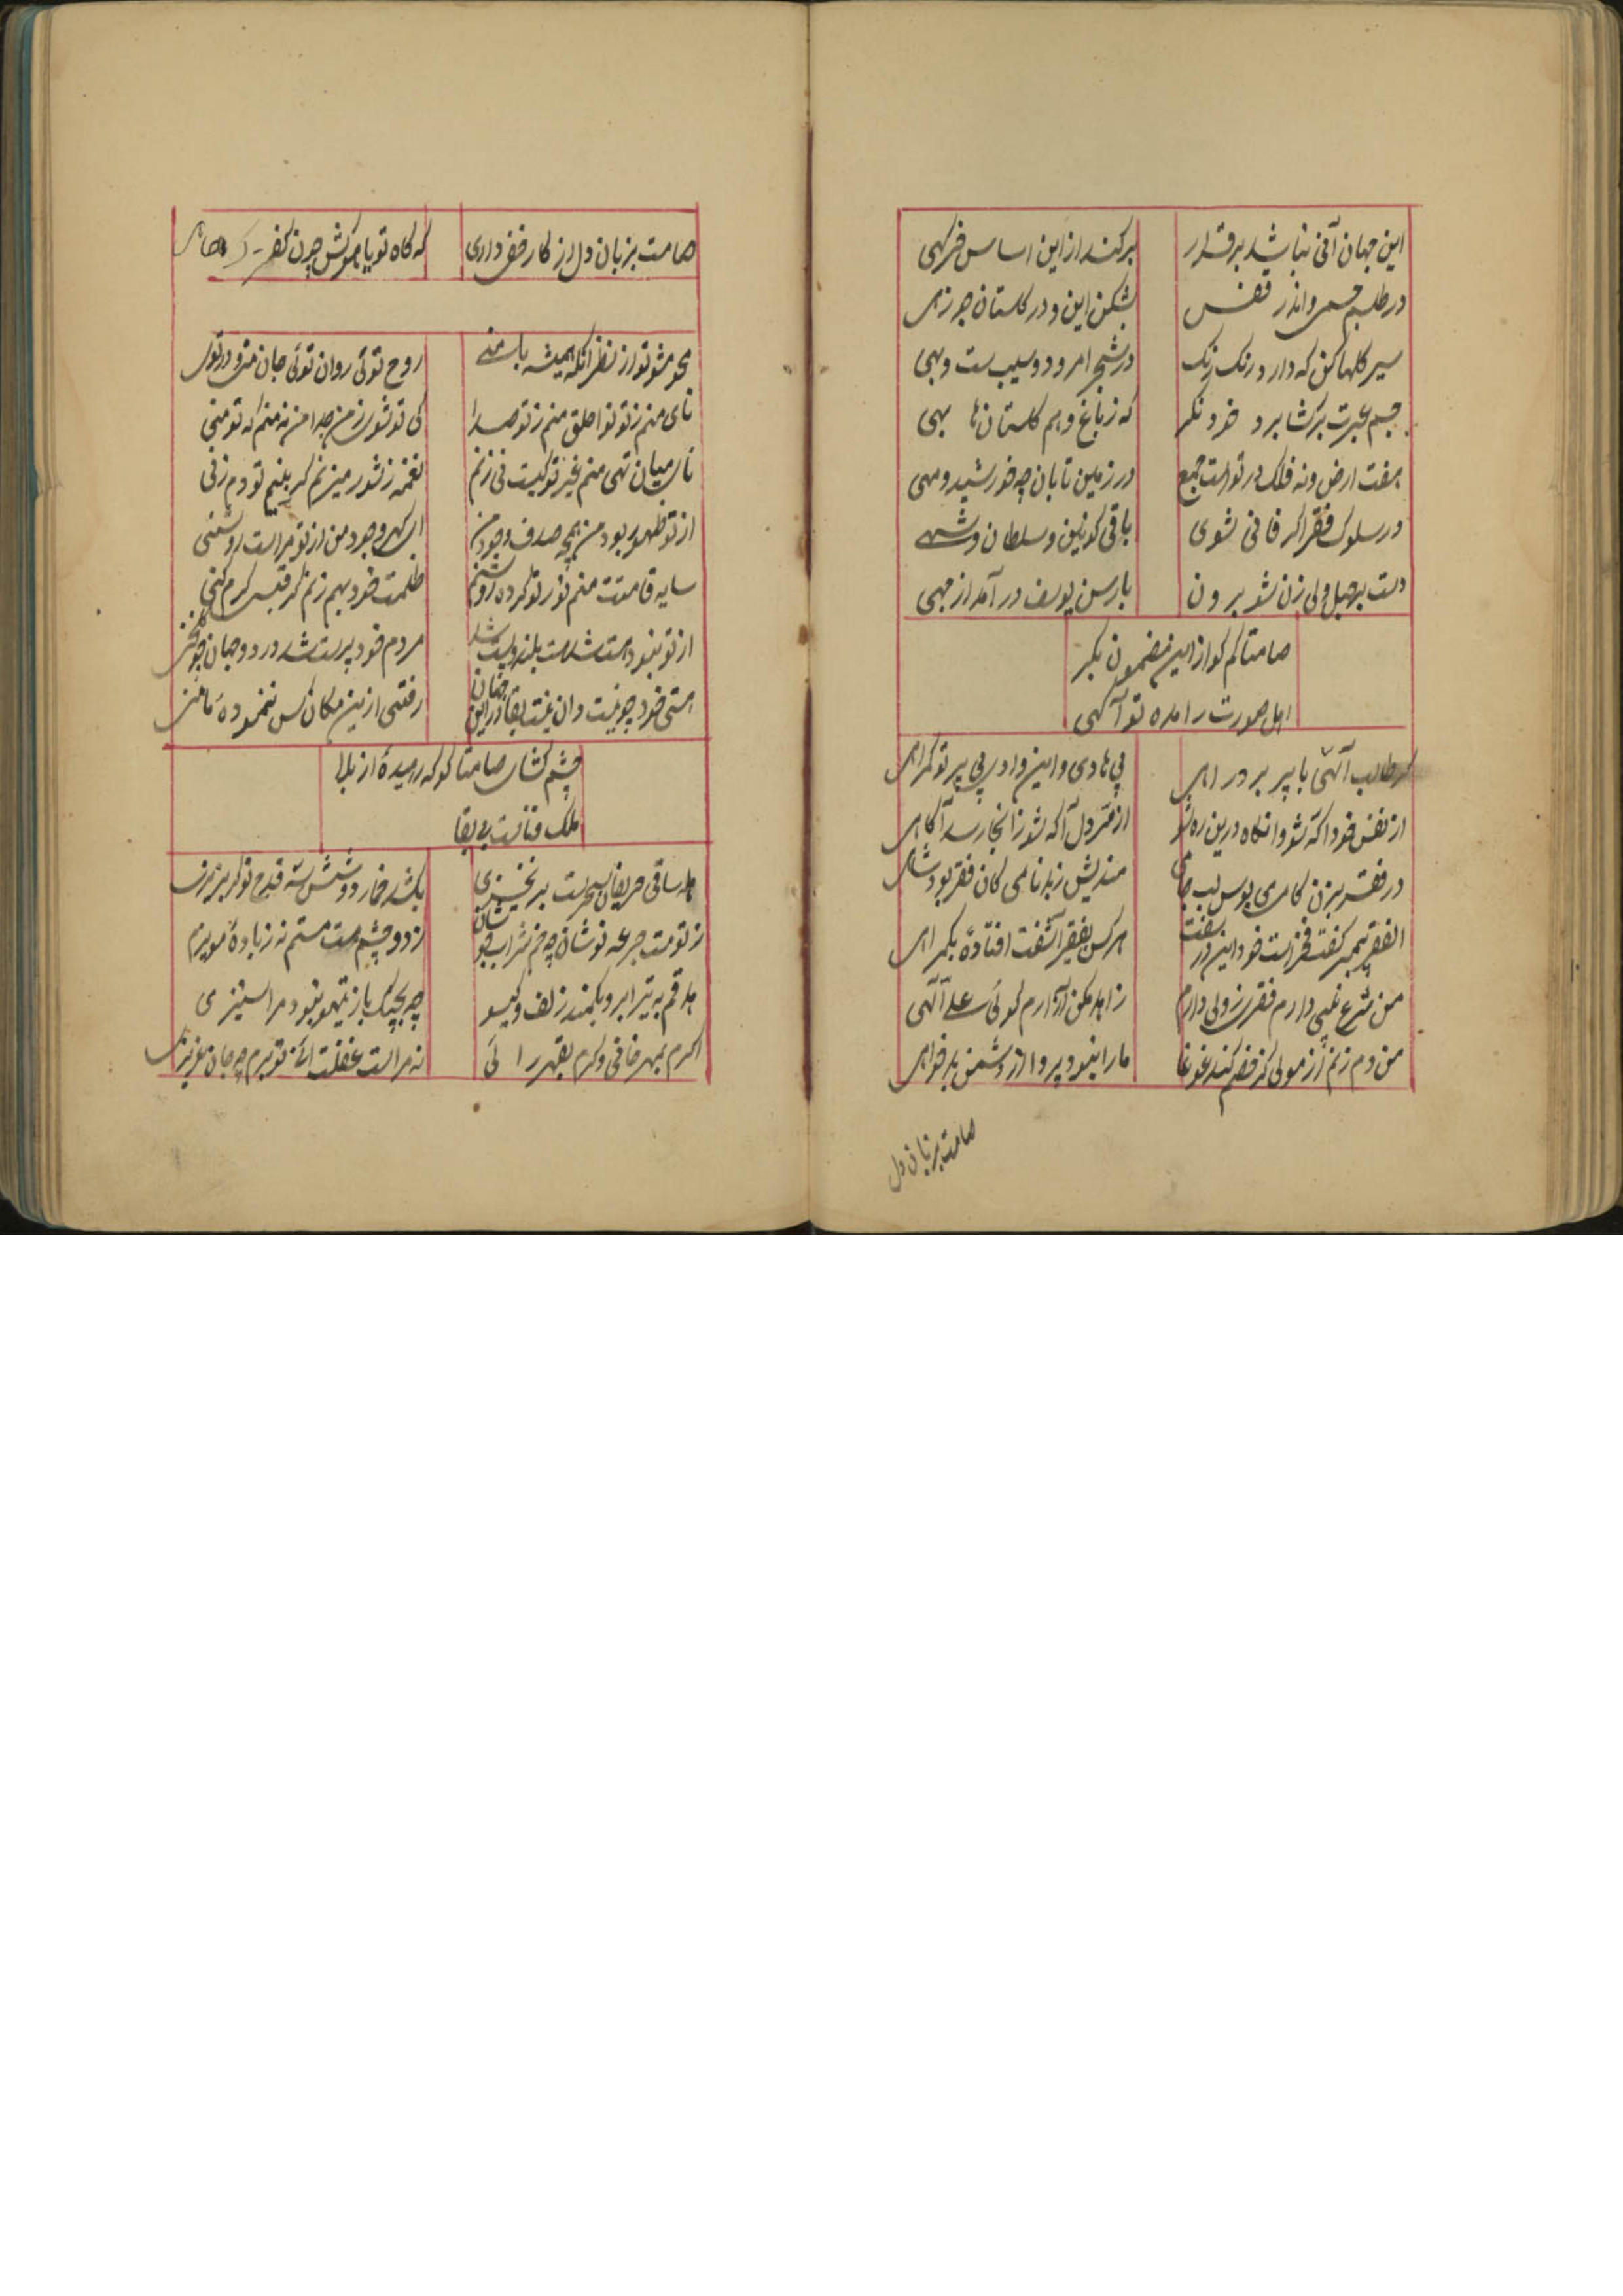 این جهان آنی نباشد برقرار
برکند از این اساس خرکهی
در طلسم جسمی و اندر قفس
بشکن این و در کلستان جو رهی
سیر کلها کن که دارد رنک رنک
در شجر امرود و سیب ست و بهی
چشم عبرت برکشا بر و خرد نکر
که ز باغ و هم کلستان ها بهی
هفت ارض و نه فلک در تو است جمع
در زمین تابان چه خورشید و مهی
در سلوک فقر اکر فانی شوی
باقی کونین و سلطان و شهی
دست بر حبل ولی زن شو برون
با رسن یوسف در آمد از چهی
صامتا کم کو از این مضمون بکر
اهل صورت را مده تو آکهی
کر طالب آلهی با پیر برد راهی
بی هادی و این وادی بی پیر تو کمراهی
از نفس خود آکه شو وانکاه درین ره شو
از سر دل آکه شو زانجا رسد آکاهی
در فقر بزن کامی بوس لب جامی
مندیش ز بدنامی کان فقر بود شاهی
الفقر پیمبر کفت فخر است خود این در سفت
هر کس بفقیر آشفت افتاده بکمراهی
من شرع نبی دارم فقر ز ولی دارم
زاهد مکن آزارم کوئی علی آلهی
من دم زنم از مولی کر خصم کند غوغا
ما را نبود پروا از دشمن بدخواهی
صامت بزبان دل
صامت بزبان دل از کار خفر داری
که کاه تو با
محو مشو تو از نظر زانکه همیشه با منی
روح توئی روان توئی جان من و در تنی
نای منم ز تو نوا حلق منم ز تو صدا
کی تو شوی ز من جدا من نه منم که تو منی
نای میان تهی منم غیر تو کیست نی زنم
نغمه ز شور میزنم کر بنیم تو دم زنی
از تو ظهور بود من همچه صدف وجود من
ای کهر وجود من از تو مراست روشنی
سایه قامتت منم نور تو کرده روشنم
ظلمت خود بهم زنم کر قبسی کرم کنی
از تو نبود هست شد هست بلند و پست شد
مردم خود پرست شد در دو جهان چو
هستی خود چو نیست دان نیست بقا در این جهان
رفتی ازین مکان کس ننموده
چشم کشای صامتا کو که رسیده از بلا
ملک فناست بی بقا
هله ساقی حریفان سحرست بر نخیزی
بکشد خمار دوشش سه قدح تو کر بریزی
ز تو مست جرعه نوشان چه خم شراب جوشان
ز دو چشم مست مستم نه ز باده مویزم
هدفم به تیر ابرو بکمند زلف و کیسو
چو بچنک باز تیهو نبود مرا ستیزی
اکرم بمهر خانی و کرم بقهر رانی
نه مراست غفلت